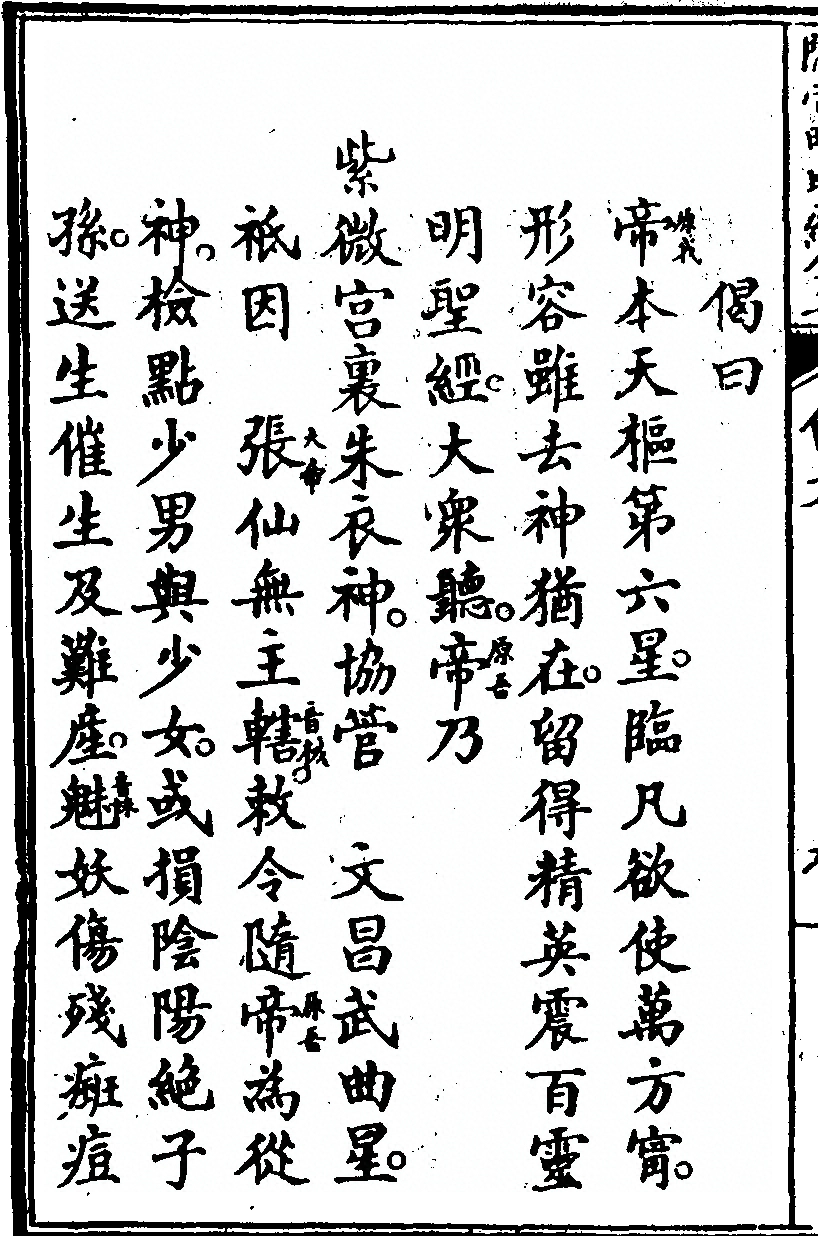 偈曰
帝原我本天樞第六星。臨凡欲使萬方甯。
形容雖去神猶在。留得精英震百靈
明聖經。大衆聽。帝原吾乃
紫微宮裏朱衣神。協管 文昌武曲星。
祗因 張大帝仙無主轄音核敕令隨帝原吾為從
神。檢點少男與少女。或損陰陽絕子
孫。送生催生及難產。魁音妖傷殘痲痘